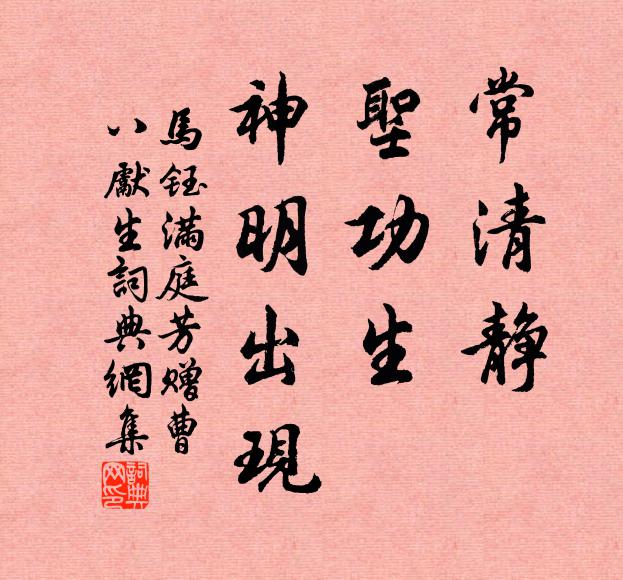 常清静
聖功生
神明出現
馬鈺满庭芳赠曹
八獻生詞典網集
詞典
网印